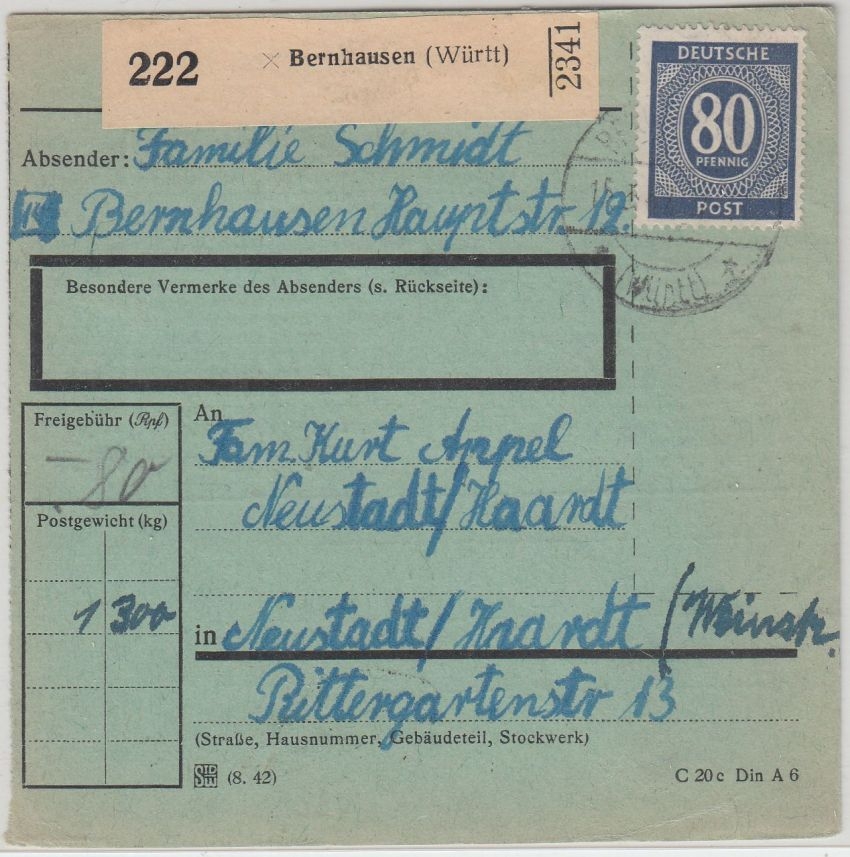 222 × Bernhausen (Württ) 2341
DEUTSCHE
80
PFENNIG
POST
Absender: Familie Schmidt
Bernhausen Hauptstr. 12.
(Württ)
Besondere Vermerke des Absenders (s. Rückseite):
Freigebühr (Rpf)
-80
Postgewicht (kg)
1 300
An
Fam. Kurt Ampel
Neustadt/Haardt
in Neustadt/Haardt (Weinstr.
Rittergartenstr 13
(Straße, Hausnummer, Gebäudeteil, Stockwerk)
(8. 42)
C 20 c Din A 6